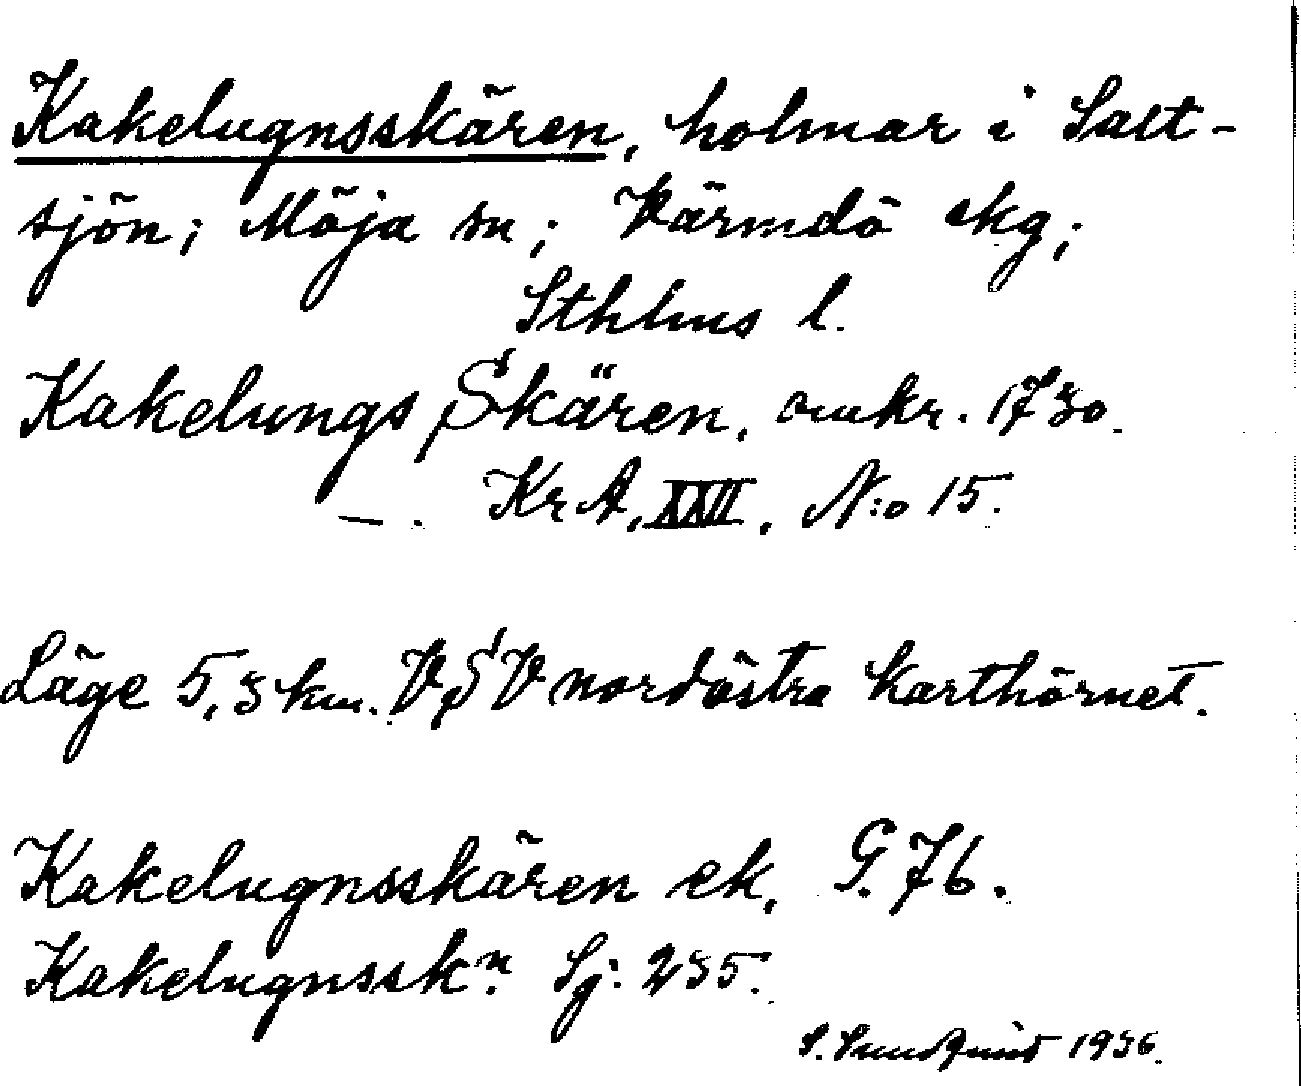 Kakelugnsskären, holmar i Salt-
sjön; Möja sn; Värmdö skg;
Sthlms l.
Kakelungs Skären, omkr. 1730.
—. KrA, XXII, N:o 15.
Läge 5,3 km. VSV nordöstra karthörnet.
Kakelugnsskären ek, G. 76.
Kakelugnsskn. Sj: 235.
S. Sundquist 1936.